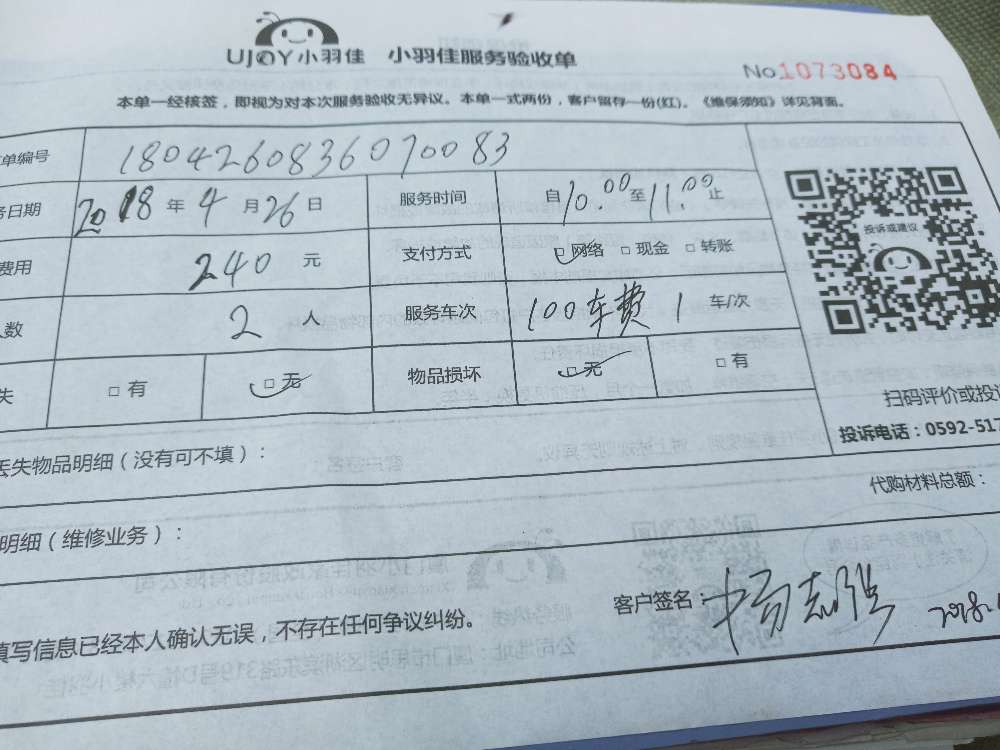 UJOY小羽佳 小羽佳服务验收单
No 1073084
本单一经核签，即视为对本次服务验收无异议。本单一式两份，客户留存一份(红)。《维保须知》详见背面。
单编号 18042608360700083
务日期 2018 年 4 月 26 日 服务时间 自 10.00 至 11.00 止
费用 240 元 支付方式 □ 网络 □ 现金 □ 转账
人数 2 人 服务车次 100车费 1 车/次
失 □ 有 □ 无 物品损坏 □ 无 □ 有
投诉或建议
扫码评价或投诉
投诉电话：0592-517
丢失物品明细（没有可不填）：
代购材料总额：
明细（维修业务）：
填写信息已经本人确认无误，不存在任何争议纠纷。
客户签名： 杨志强 2018.